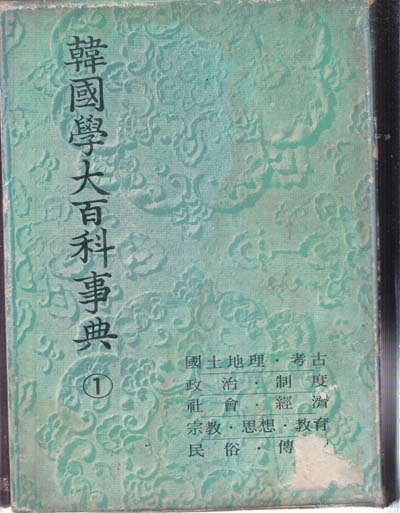 韓國學大百科事典
①
國土地理·考古
政治·制度
社會·經濟
宗教·思想·教育
民俗·傳